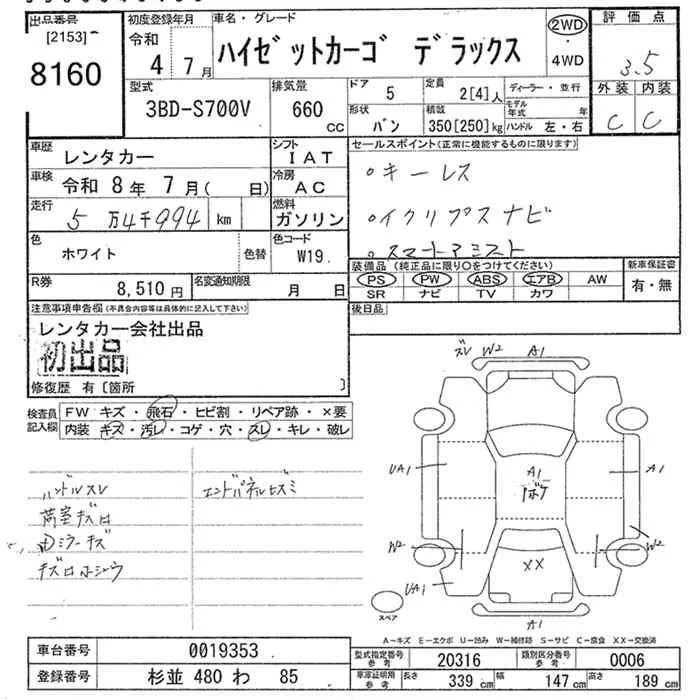 出品番号
[2153]
8160
初度登録年月
令和
4年7月
車名・グレード
ハイゼットカーゴ デラックス
2WD
・
4WD
評価点
3.5
外装 内装
C C
型式
3BD-S700V
排気量
660
CC
ドア
5
定員
2[4]人
ディーラー・並行
形状
バン
積載
350[250]kg
モデル年式 年
ハンドル 左・右
車歴
レンタカー
シフト
IAT
車検
令和 8年 7月( 日)
冷房
AC
走行
5万4千994 km
燃料
ガソリン
色
ホワイト
色替
色コード
W19
R券
8,510円
名変通知期限
月 日
セールスポイント(正常に機能するものに限ります)
・キーレス
・イクリプスナビ
・スマートアシスト
装備品(純正品に限り○をつけてください)
PS PW ABS エアB AW
SR ナビ TV カワ
新車保証書
有・無
後日品
注意事項申告欄(不具合内容等は具体的に記入して下さい)
レンタカー会社出品
初出品
修復歴 有〔箇所 〕
検査員記入欄
FW キズ・飛石・ヒビ割・リペア跡・×要
内装 キズ・汚レ・コゲ・穴・スレ・キレ・破レ
ハンドルスレ
荷室キズ凹
ミラーキズ
キズ凹ホシュウ
エンドパネルヒズミ
ズレ W2 A1
UA1
A1
ボケ
A1
W2
W2
XX
UA1
A1
スペア
A-キズ E-エクボ U-凹み W-補修跡 S-サビ C-腐食 XX-交換済
車台番号
0019353
登録番号
杉並 480 わ 85
型式指定番号
参考
20316
類別区分番号
参考
0006
車庫証明用
参考
長さ
339 cm
幅
147 cm
高さ
189 cm